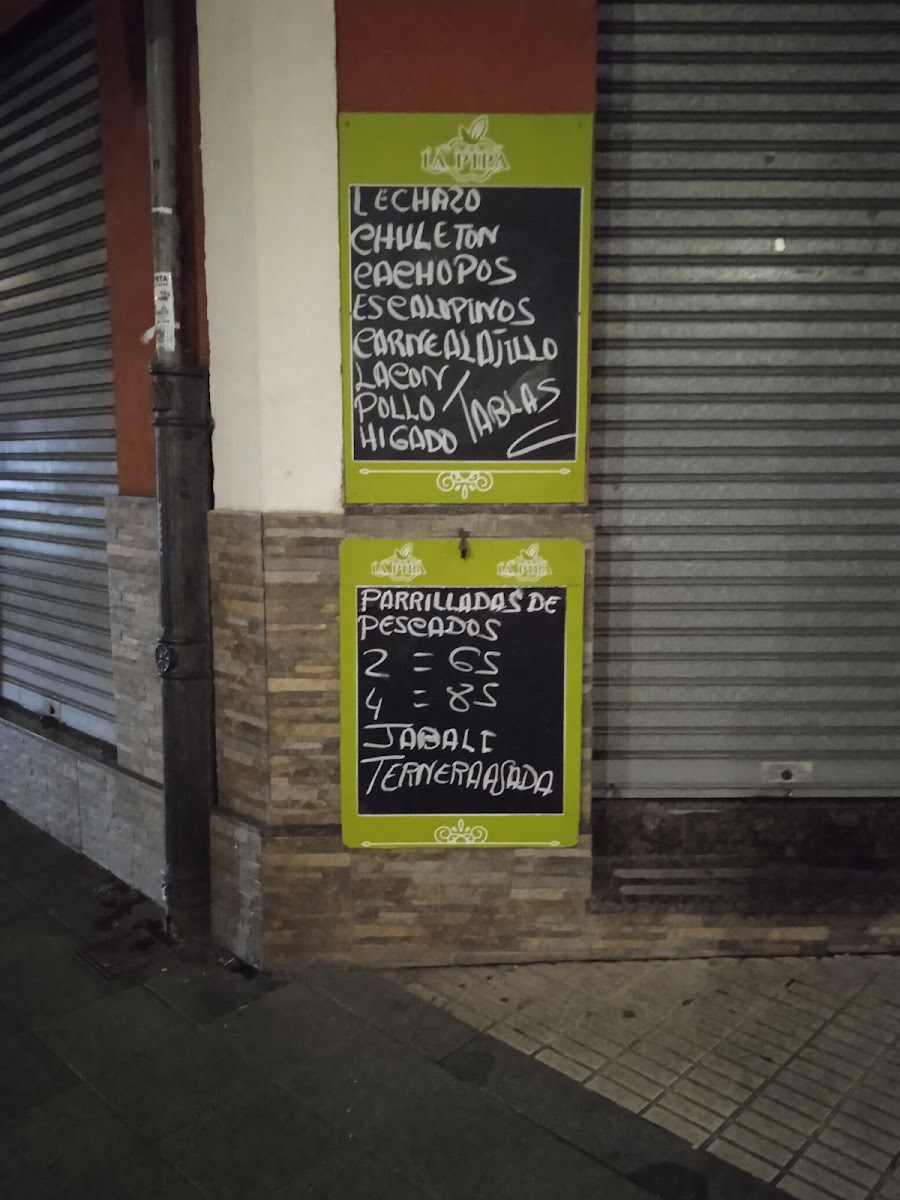 LA PIPA
LECHAZO
CHULETON
CACHOPOS
ESCALOPINOS
CARNE AL AJILLO
LACON
POLLO / TABLAS
HIGADO
LA PIPA LA PIPA
PARRILLADAS DE
PESCADOS
2 = 65
4 = 85
JABALI
TERNERA ASADA